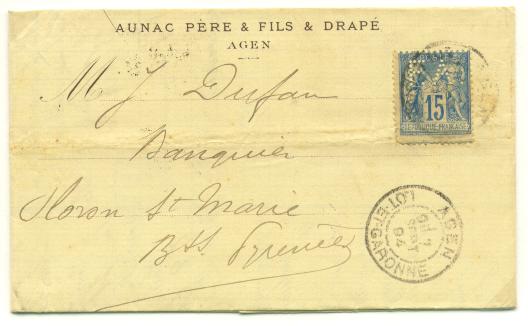 AUNAC PÈRE & FILS & DRAPÉ
AGEN
M J Dufau
Banquier
Oloron Ste Marie
Bses Pyrénées
15
REPUBLIQUE FRANÇAISE
AGEN
SEPT
94
LOT-ET-GARONNE